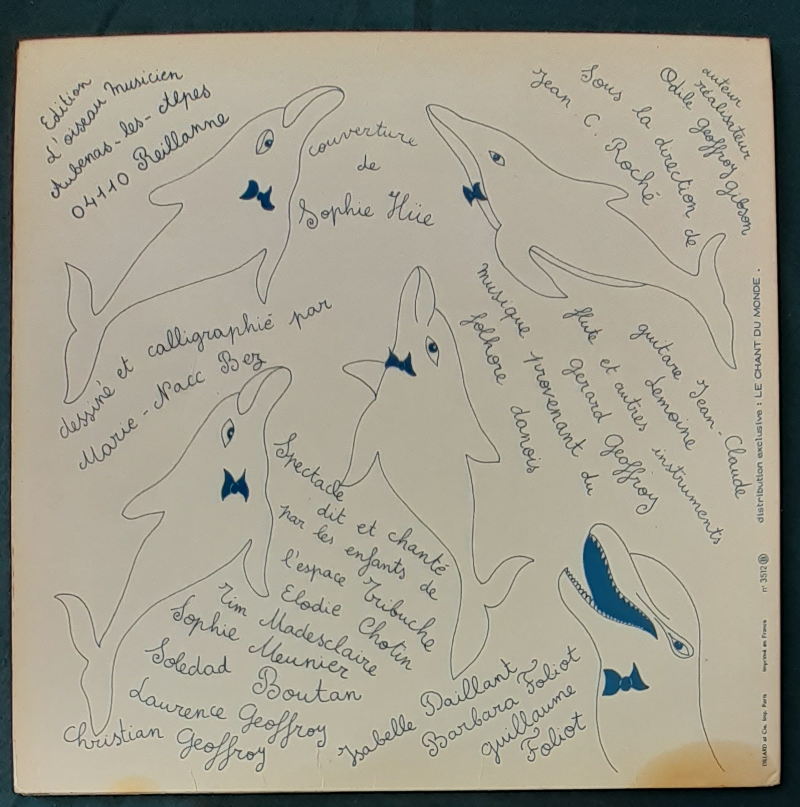 Edition
L'oiseau musicien
Aubenas-les-Alpes
04110 Reillanne
couverture
de
Sophie Hüe
auteur
réalisateur
Odile Geoffroy Gibson
Sous la direction de
Jean. C. Roché
dessiné et calligraphié par
Marie-Nacc Bez
guitare Jean-Claude
Lemoine
flute et autres instruments
gerard Geoffroy
musique provenant du
folhore danois
Spectacle
dit et chanté
par les enfants de
l'espace Tribuche
Elodie Chotin
Rim Madesclaire
Sophie Meunier
Soledad Boutan
Laurence Geoffroy
Christian Geoffroy
Isabelle Daillant
Barbara Foliot
guillaume
Foliot
distribution exclusive : LE CHANT DU MONDE .
n° 3512
Imprimé en France
DILLARD et Cie. Imp. Paris